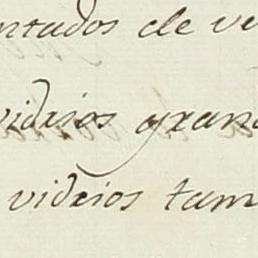 ntados de ve
vidrios gran
vidrios tam